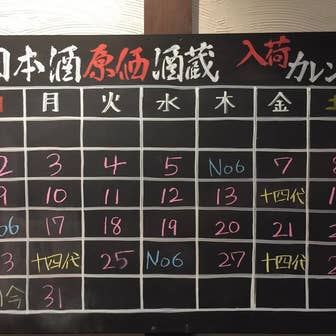 日本酒原価酒蔵 入荷カレン
日 月 火 水 木 金 土
2 3 4 5 No6 7 8
9 10 11 12 13 十四代
No6 17 18 19 20 21 2
3 十四代 25 No6 27 十四代 2
今 31